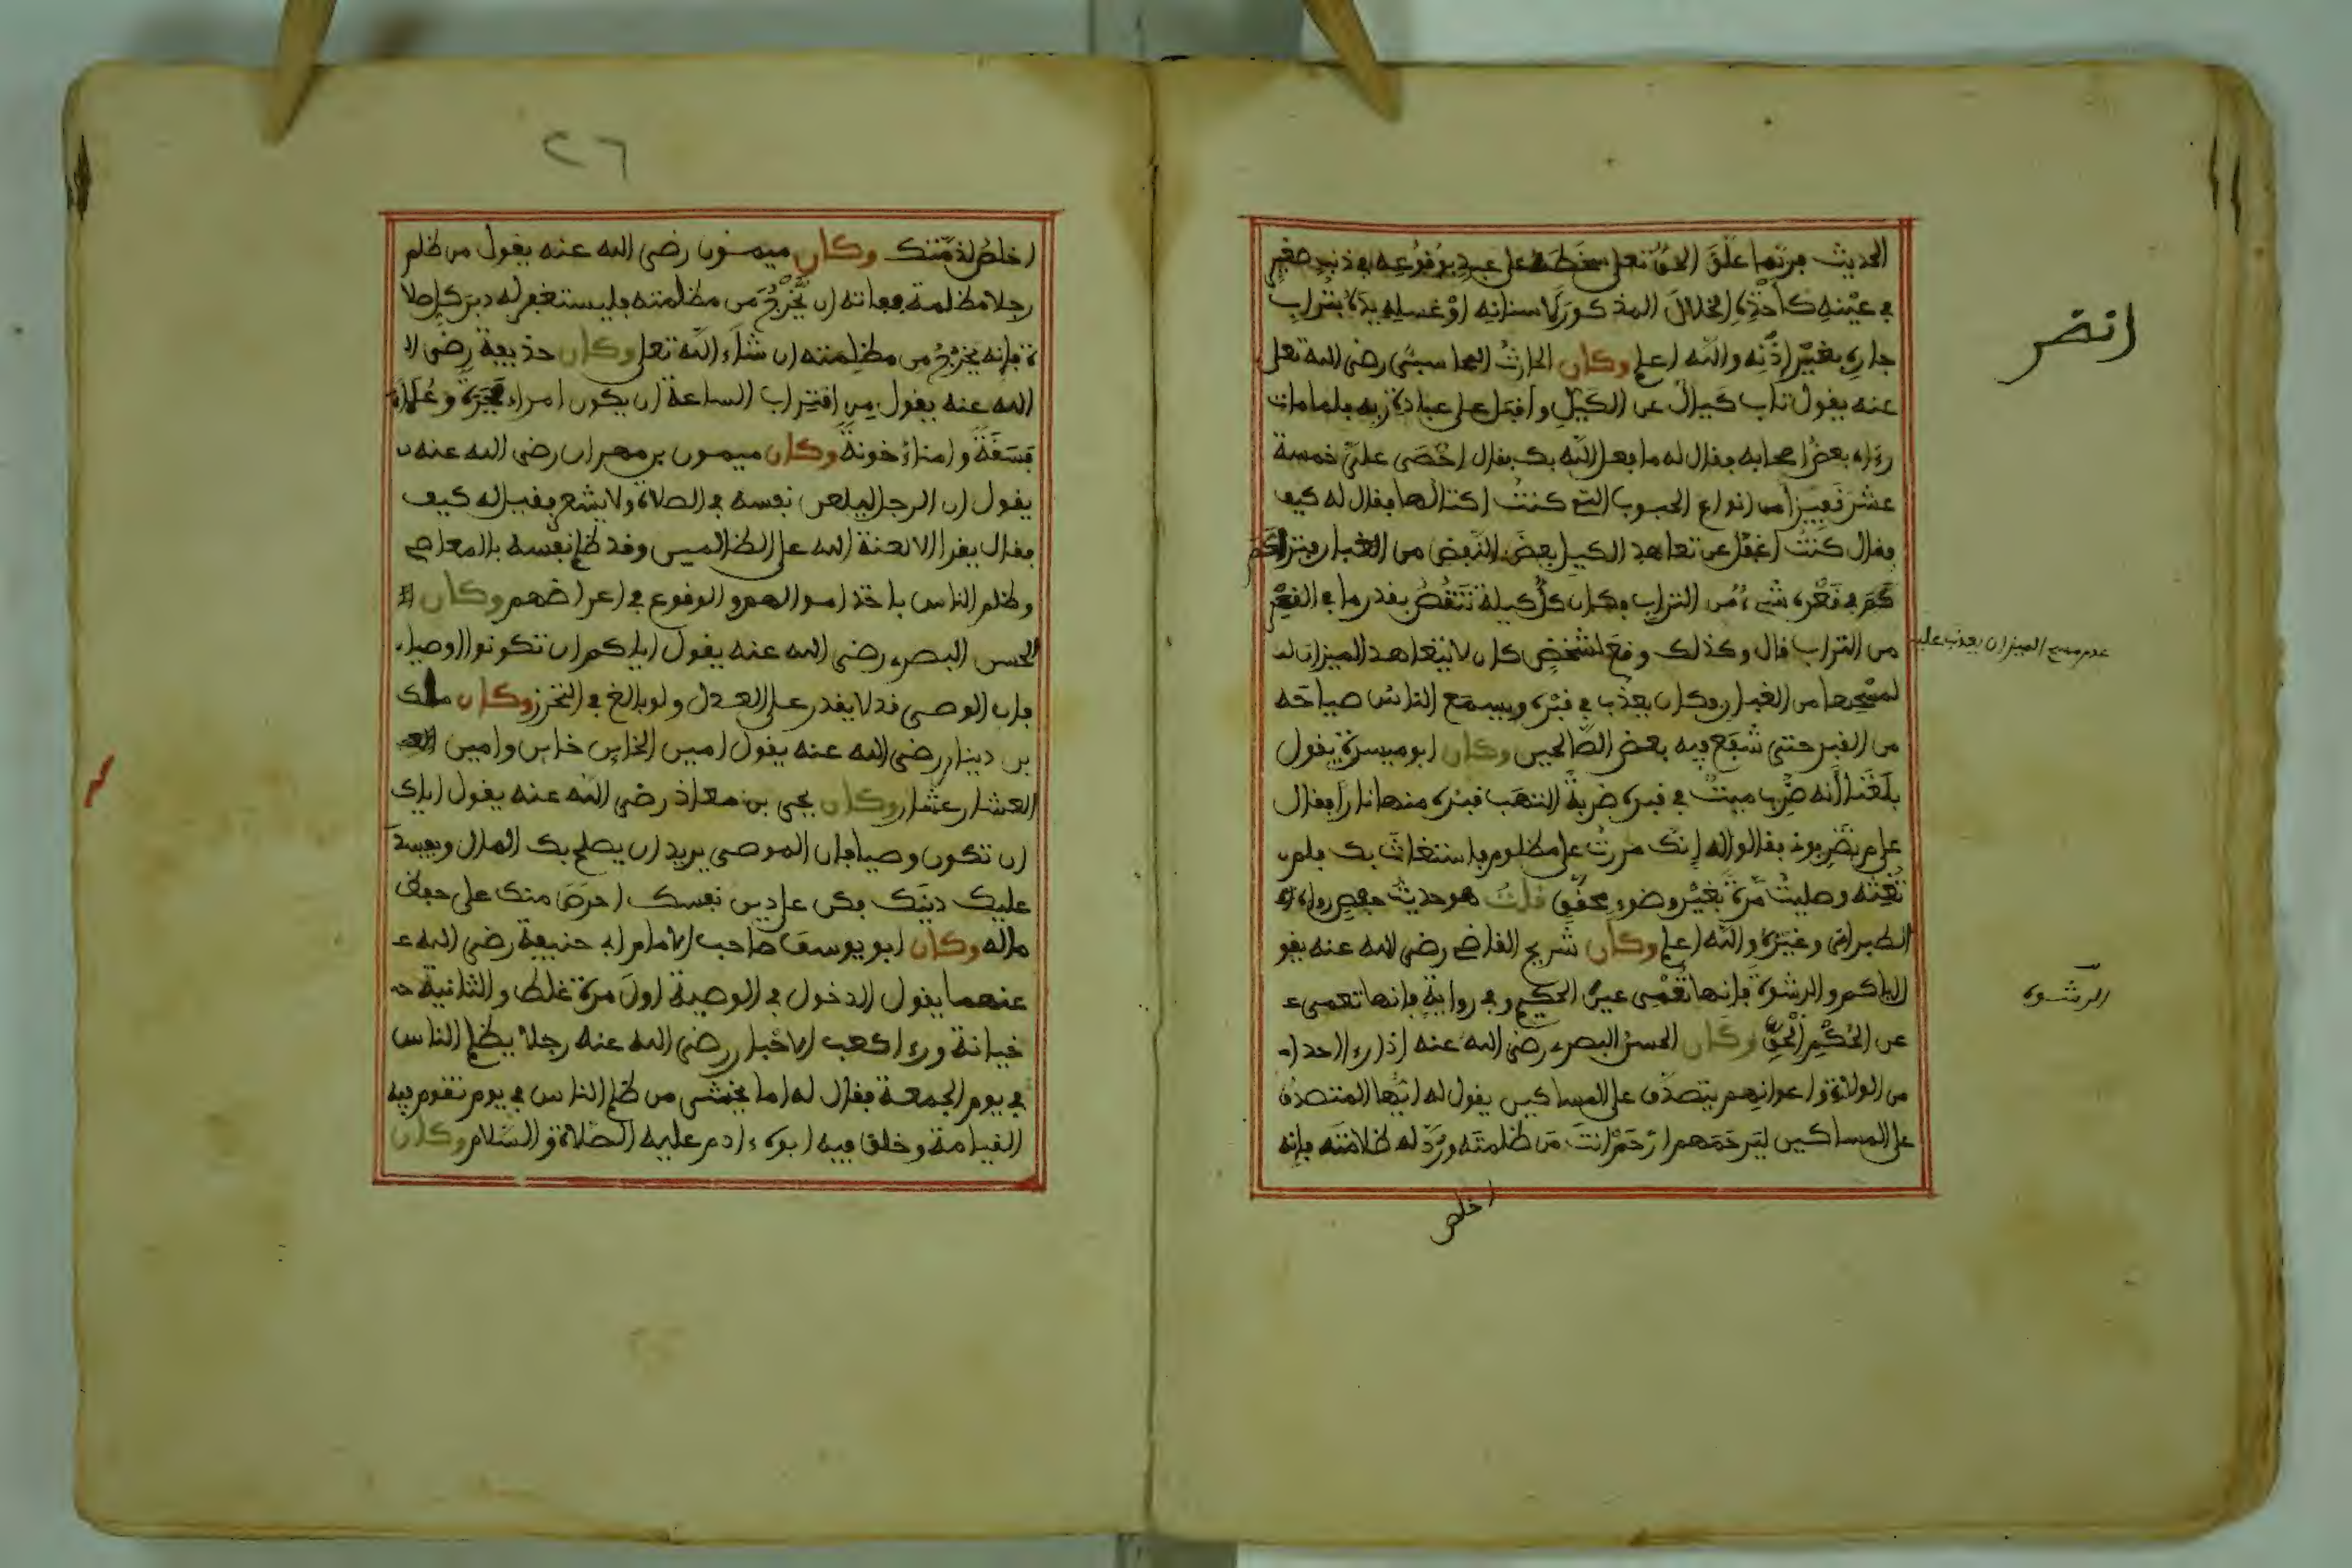 الحديث فربما علق الحق تعلى سخطه على عبد بوقوعه في ذنب صغير
في عينه كأخذه الخلال المذكور لاسنانه أو غسله يده بتراب
جاره بغير إذنه والله اعلم وكان الحارث المحاسبي رضي الله تعلى
عنه يقول تاب كيال عن الكيل وأقبل على عبادة ربه فلما مات
رءاه بعض اصحابه فقال له ما فعل الله بك فقال احصى علي خمسة
عشر قفيزا من انواع الحبوب التي كنت اكتالها فقال له كيف
فقال كنت اغفل عن تعاهد الكيل بعض النفض من الغبار
في قعره شيء من التراب فكان كل كيلة تنقص بقدر ما في القعر
من التراب قال وكذلك وقع لشخص كان لا يتعاهد الميزان
لمسحها من الغبار وكان يعذب في قبره ويسمع الناس صياحه
من القبر حتى شفع فيه بعض الصالحين وكان ابو ميسرة يقول
بلغنا أنه ضرب ميت في قبره ضربة التهب قبره منها نارا فقال
علام تضربوني فقالوا له إنك مررت على مظلوم فاستغاث بك فلم
تغثه وصليت مرة بغير وضوء محقق قلت هو حديث رواه
الطبراني وغيره والله اعلم وكان شريح القاضي رضي الله عنه يقو
إياكم والرشوة فإنها تعمي عين الحكيم وفي رواية فإنها تعمي ع
عن الحكم الحق وكان الحسن البصري رضي الله عنه إذا رءا احدا
من الولاة واعوانهم يتصدق على المساكين يقول له ايها المتصدق
على المساكين ليرحمهم ارحم انت من ظلمته ورد له ظلامته فإنه
اخلص
انضر
عدم مسح الميزان يعذب عليه
الرشوة
٢٦
اخلص لذمتك وكان ميمون رضي الله عنه يقول من ظلم
رجلا مظلمة ففاته ان يخرج من مظلمته فليستغفر له دبر كل صلا
ة فإنه يخرج من مظلمته ان شاء الله تعلى وكان حذيفة رضي ا
الله عنه يقول من اقتراب الساعة ان يكون امراء فجرة وعلماء
فسقة وامناء خونة وكان ميمون بن مهران رضي الله عنه
يقول ان الرجل ليلعن نفسه في الصلاة ولا يشعر فقيل له كيف
فقال يقرا الا لعنة الله على الظالمين وقد ظلم نفسه بالمعاصي
وظلم الناس باخذ اموالهم والوقوع في اعراضهم وكان
الحسن البصري رضي الله عنه يقول اياكم ان تكونوا اوصياء
فإن الوصي قد لا يقدر على العدل ولو بالغ في التحرز وكان ملك
بن دينار رضي الله عنه يقول امين الخاين خاين وامين
العشار عشار وكان يحيى بن معاذ رضي الله عنه يقول اياك
ان تكون وصيا فإن الموصي يريد ان يصلح بك المال ويفسد
عليك دينك فكن على دين نفسك احرص منك على حفظ
ماله وكان ابو يوسف صاحب الامام ابي حنيفة رضي الله ع
عنهما يقول الدخول في الوصية اول مرة غلط والثانية
خيانة ورءا كعب الاحبار رضي الله عنه رجلا يظلم الناس
في يوم الجمعة فقال له اما تخشى من ظلم الناس في يوم تقوم فيه
القيامة وخلق فيه ابوك ءادم عليه الصلاة والسلام وكان